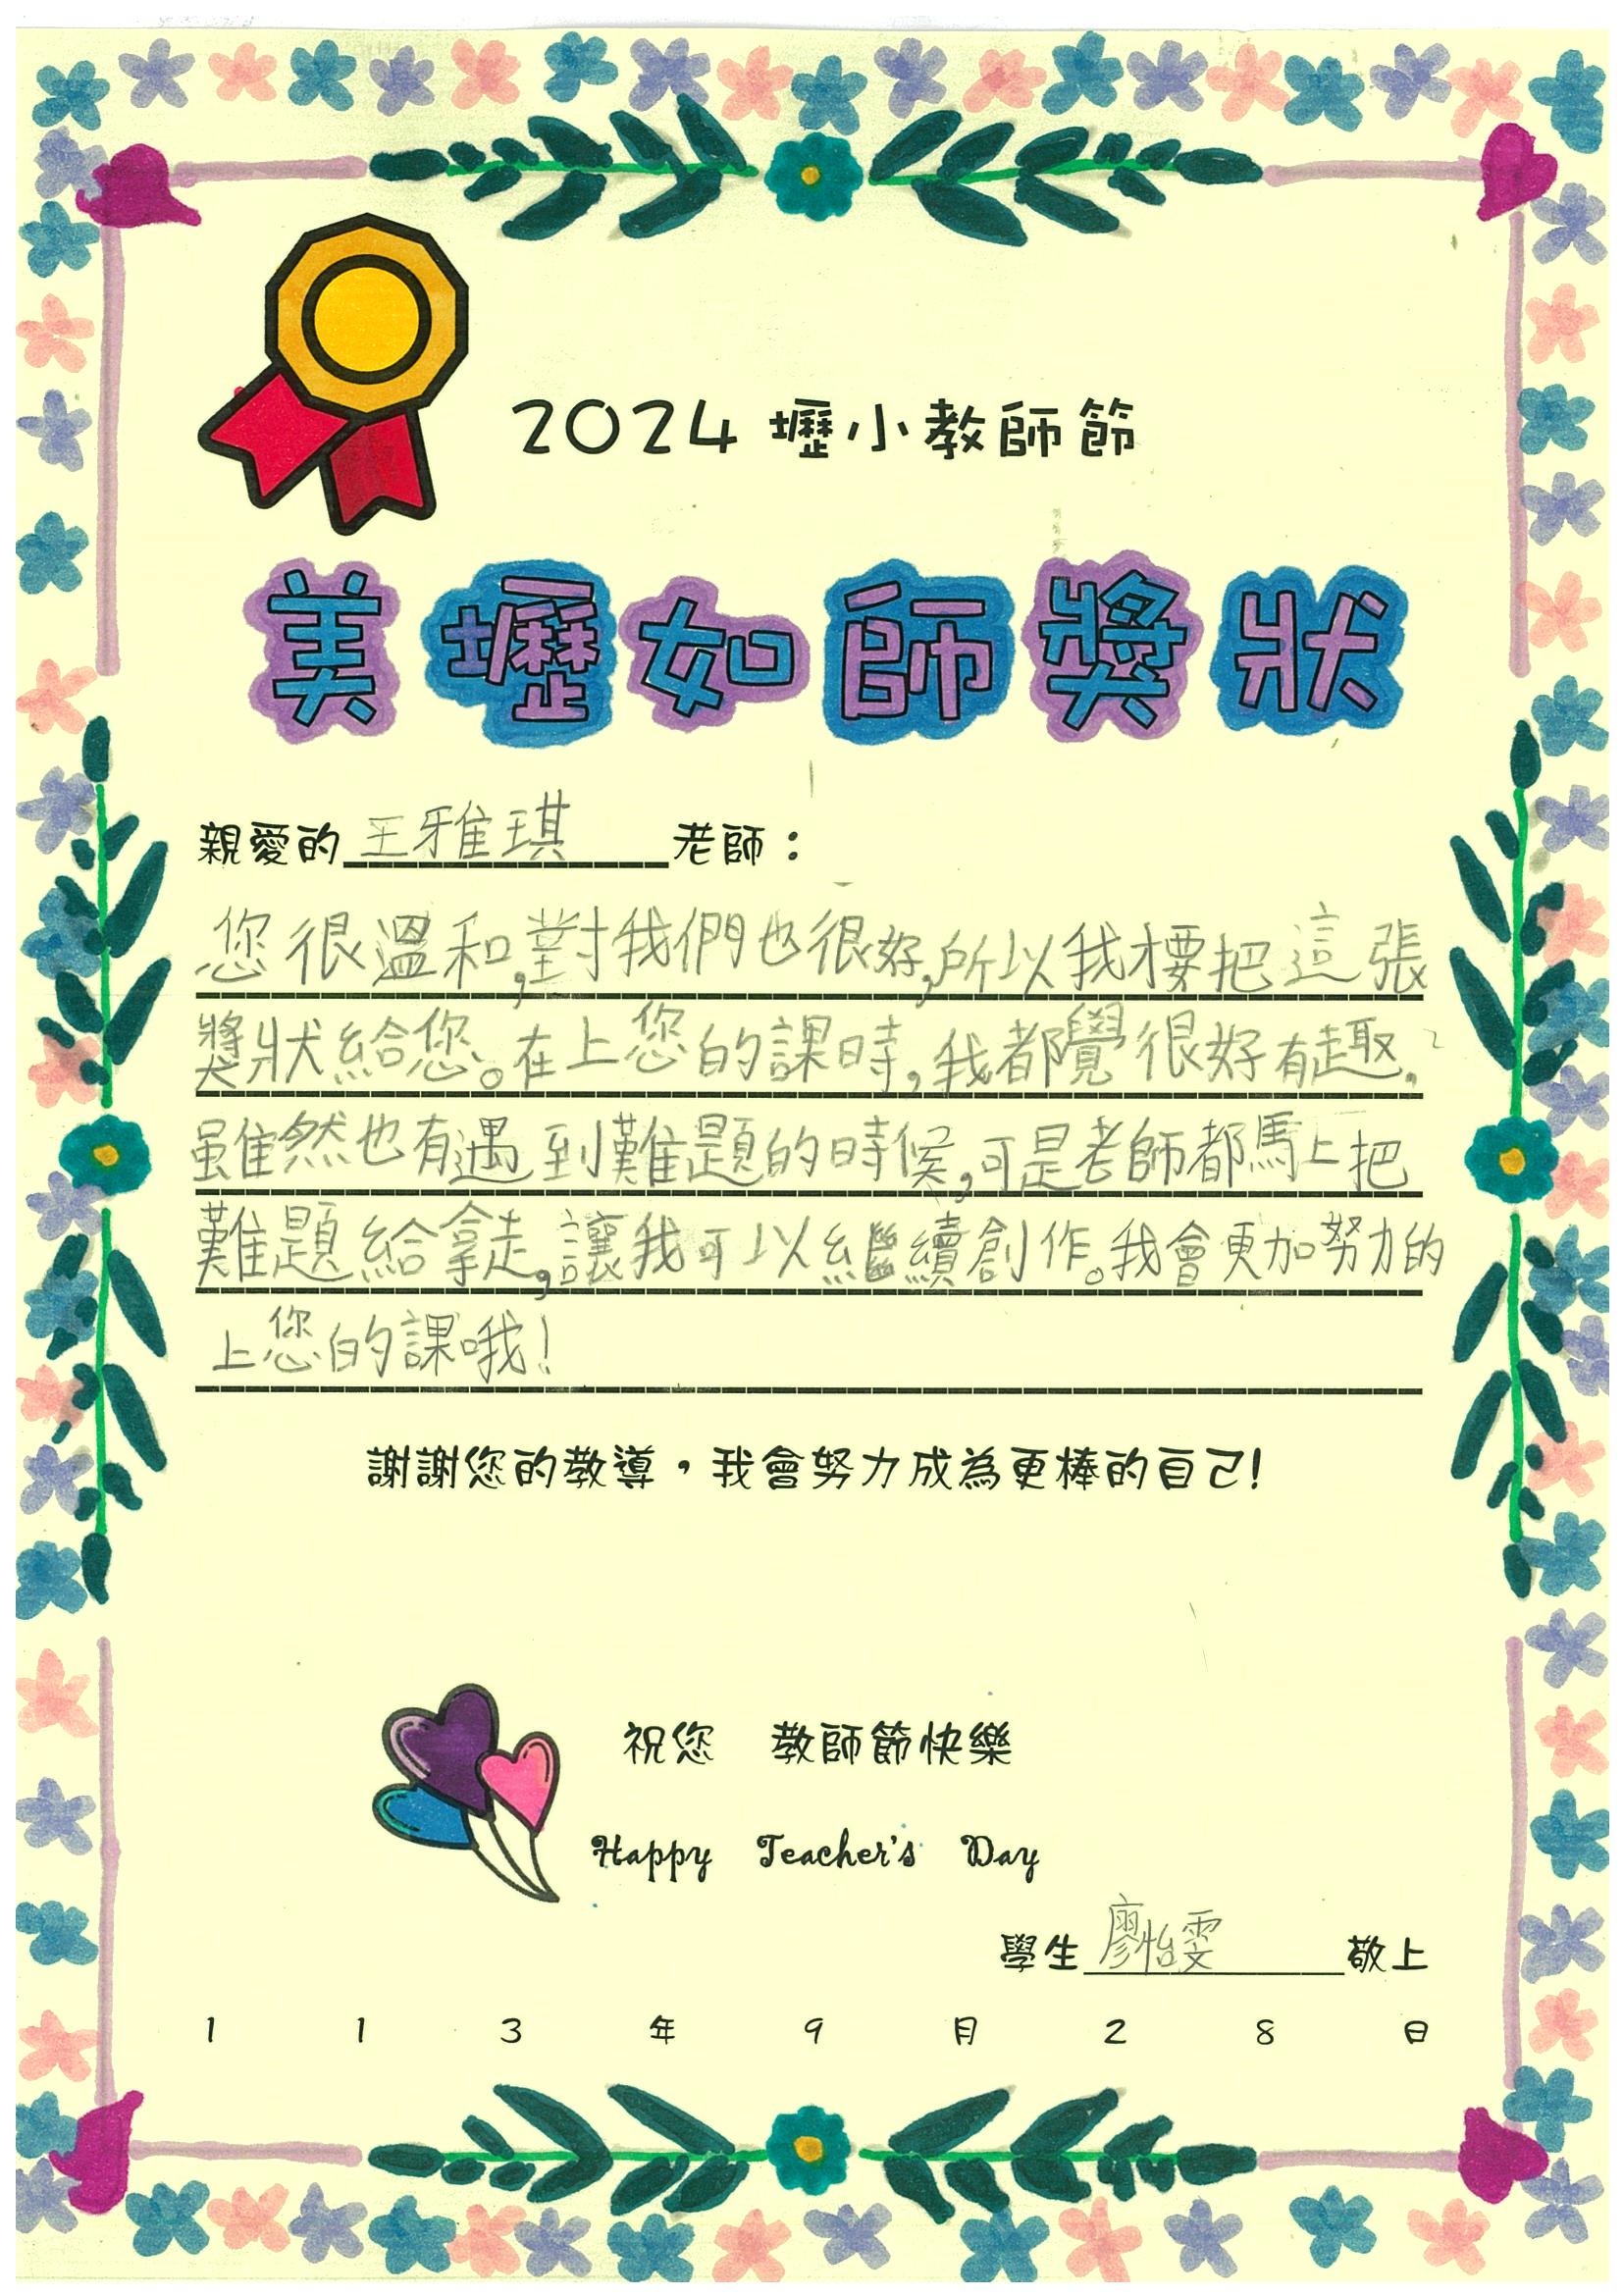 2024 壢小教師節
美壢如師獎狀
親愛的王雅琪老師：
您很溫和,對我們也很好,所以我才要把這張
獎狀給您。在上您的課時,我都覺很好有趣,
雖然也有遇到難題的時候,可是老師都馬上把
難題給拿走,讓我可以繼續創作。我會更加努力的
上您的課哦!
謝謝您的教導，我會努力成為更棒的自己!
祝您 教師節快樂
Happy Teacher's Day
學生廖怡雯敬上
1 1 3 年 9 月 2 8 日